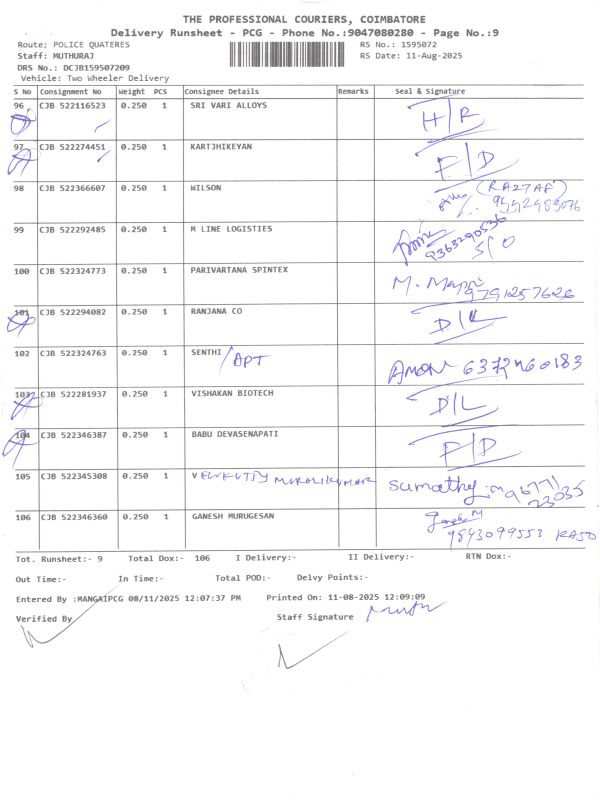 THE PROFESSIONAL COURIERS, COIMBATORE
Delivery Runsheet - PCG - Phone No.:9047080280 - Page No.:9
Route; POLICE QUATERES RS No.: 1595072
Staff: MUTHURAJ RS Date: 11-Aug-2025
DRS No.: DCJB159507209
Vehicle: Two Wheeler Delivery
S No Consignment No Weight PCS Consignee Details Remarks Seal & Signature
96 CJB 522116523 0.250 1 SRI VARI ALLOYS H/R
97 CJB 522274451 0.250 1 KARTJHIKEYAN F/D
98 CJB 522366607 0.250 1 WILSON (RA27AF)
99 CJB 522292485 0.250 1 M LINE LOGISTIES 9363290536
S/O
100 CJB 522324773 0.250 1 PARIVARTANA SPINTEX M.
9791257626
101 CJB 522294082 0.250 1 RANJANA CO D/L
102 CJB 522324763 0.250 1 SENTHI /APT AMON
103 CJB 522281937 0.250 1 VISHAKAN BIOTECH D/L
104 CJB 522346387 0.250 1 BABU DEVASENAPATI F/D
105 CJB 522345308 0.250 1 V Sumathy.M
23035
106 CJB 522346360 0.250 1 GANESH MURUGESAN Ganesh M
9843099553
Tot. Runsheet:- 9 Total Dox:- 106 I Delivery:- II Delivery:- RTN Dox:-
Out Time:- In Time:- Total POD:- Delvy Points:-
Entered By :MANGAIPCG 08/11/2025 12:07:37 PM Printed On: 11-08-2025 12:09:09
Verified By Staff Signature